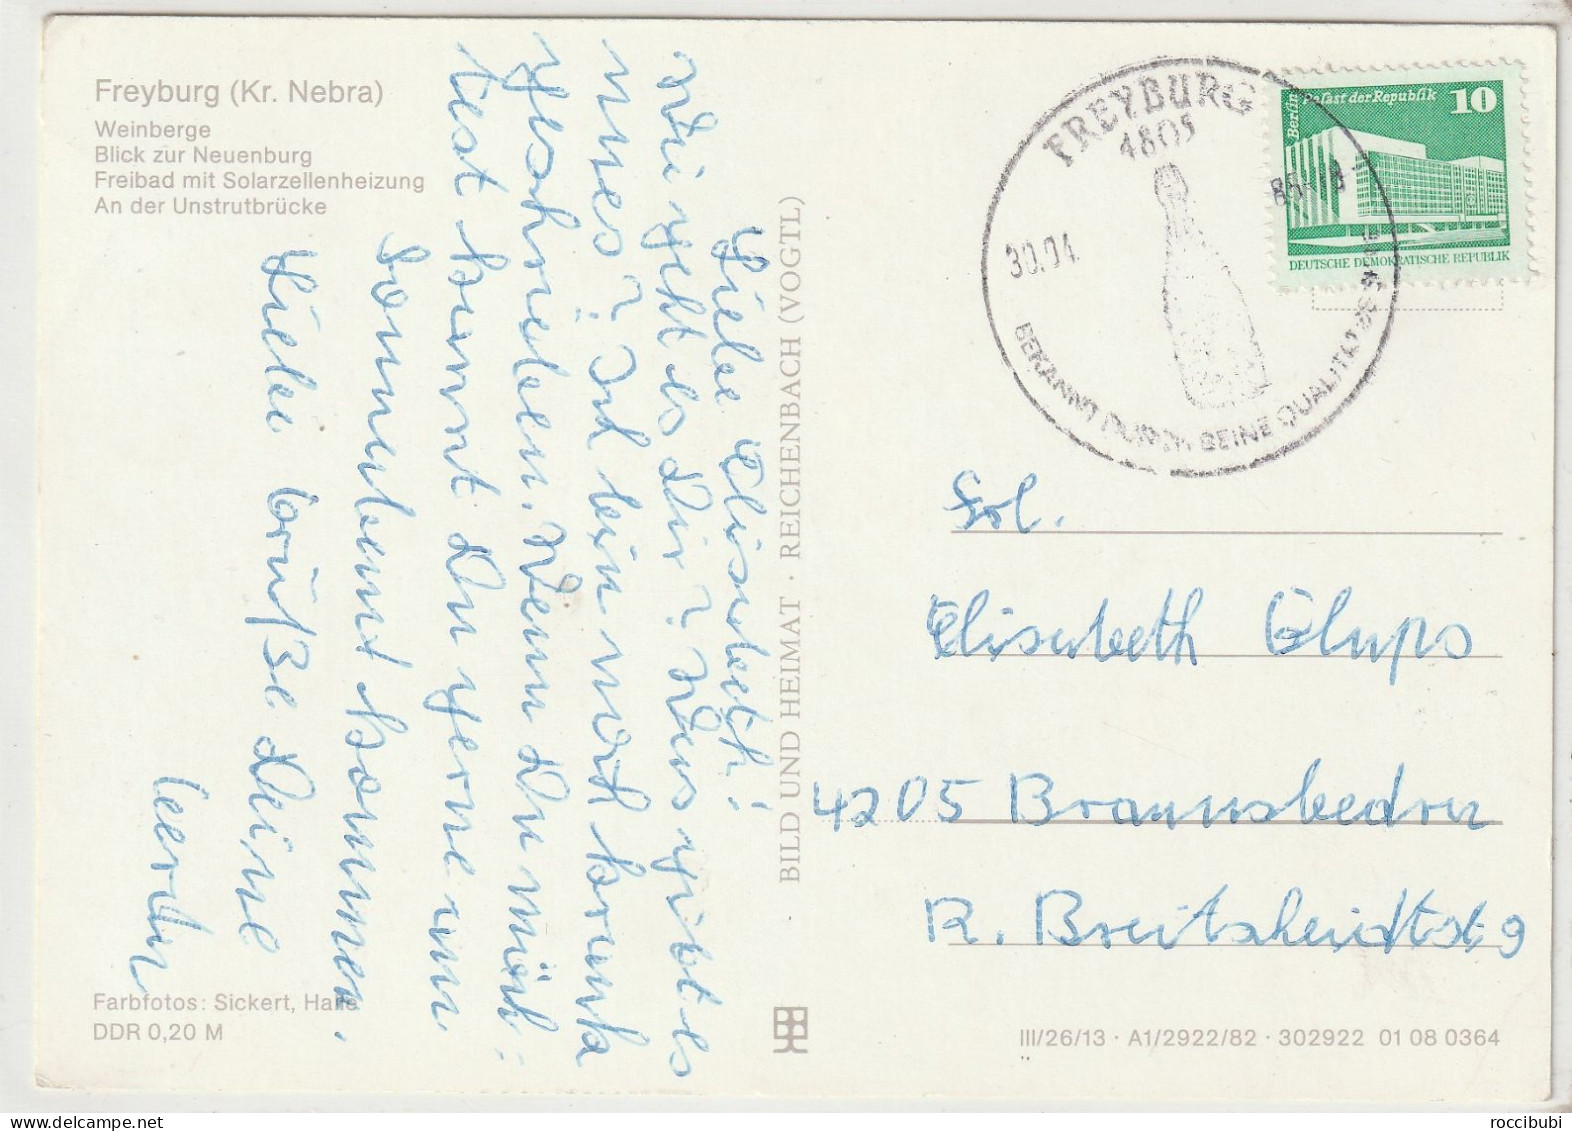 Freyburg (Kr. Nebra)
Weinberge
Blick zur Neuenburg
Freibad mit Solarzellenheizung
An der Unstrutbrücke
Liebe Elisabeth!
Wie geht es Dir? Was gibt es
neues? Ich bin noch krank
geschrieben. Wenn Du möch-
test kannst Du gerne am
Sonnabend kommen.
Liebe Grüße Deine
Farbfotos: Sickert, Halle
DDR 0,20 M
BILD UND HEIMAT · REICHENBACH (VOGTL)
FREYBURG
4805
30.04.
86-18
BEKANNT DURCH SEINE QUALITÄT
Berlin Palast der Republik 10
DEUTSCHE DEMOKRATISCHE REPUBLIK
Elisabeth
4205 Braunsbedra
R. Breitscheidtstr. 9
III/26/13 · A1/2922/82 · 302922 01 08 0364
roccibubi